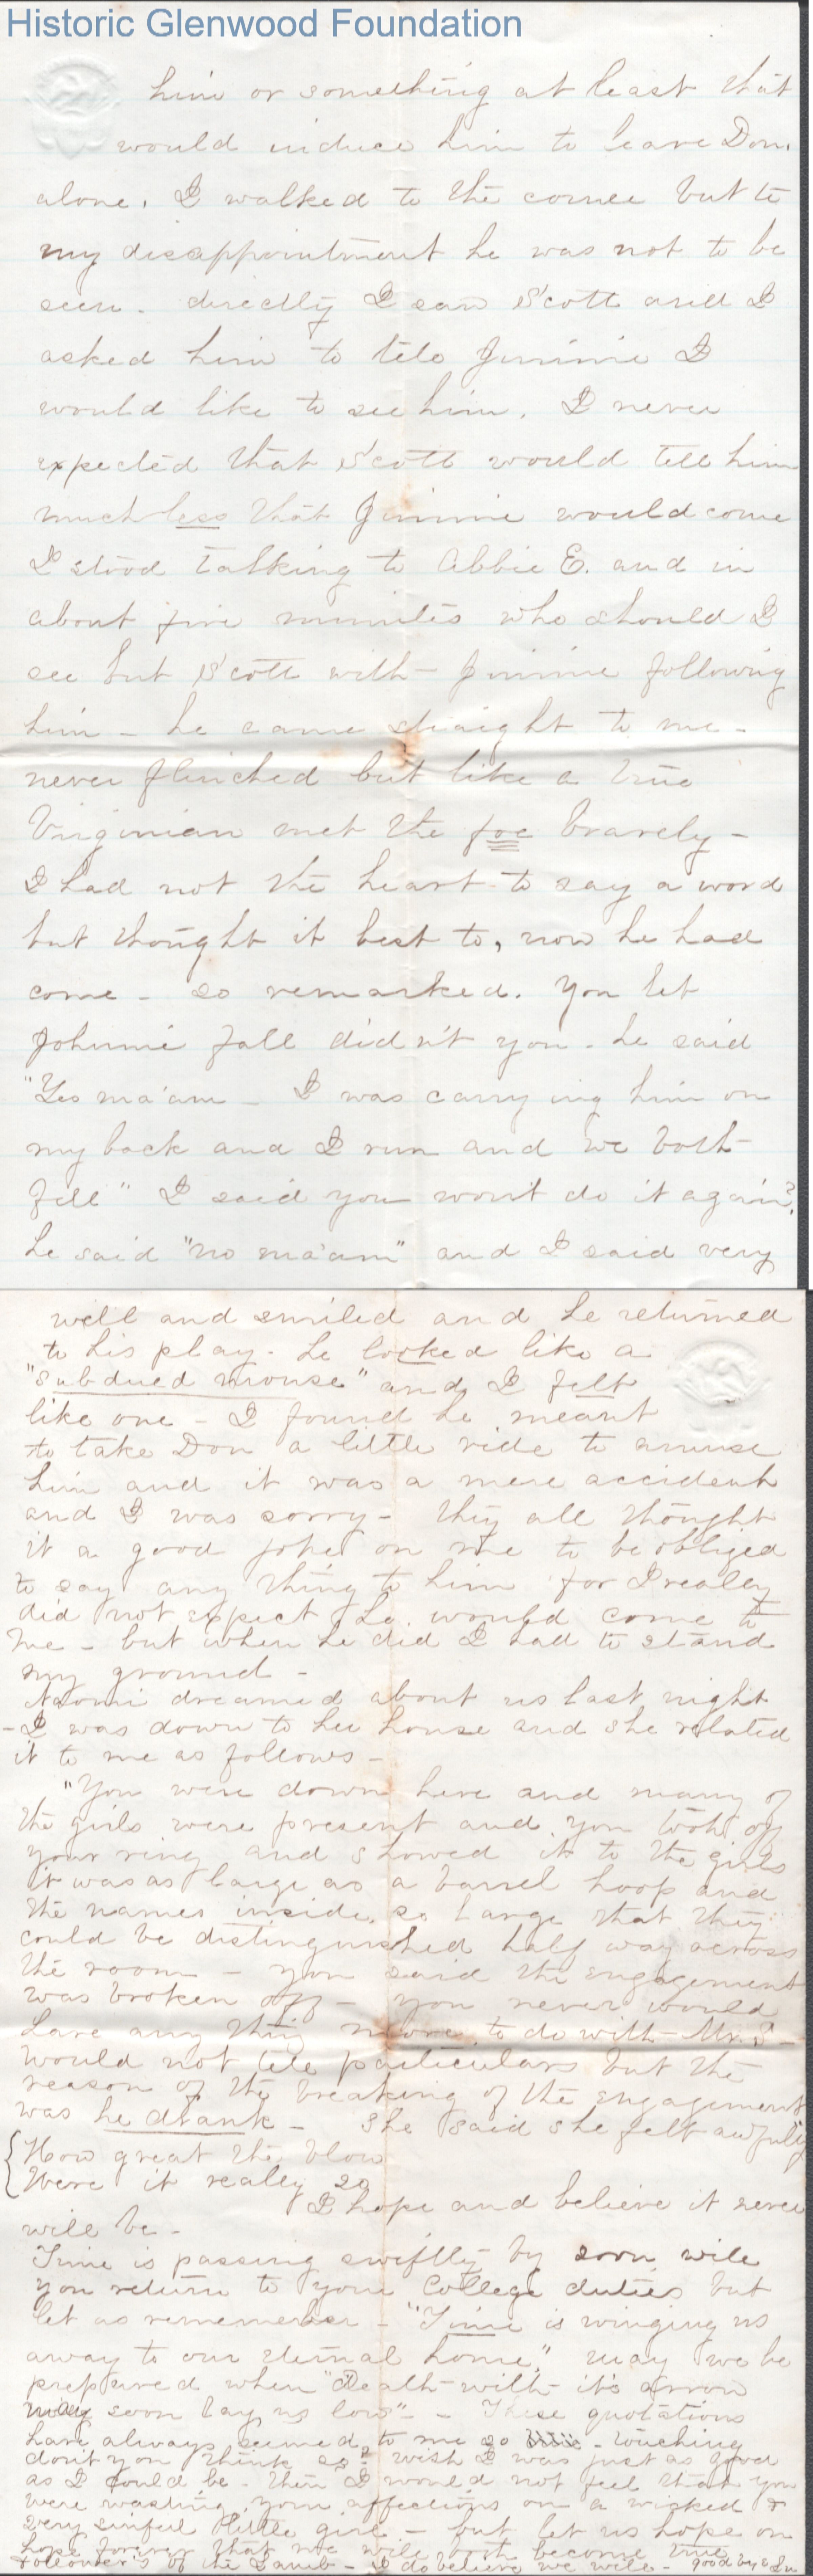 Historic Glenwood Foundation
him or something at least that
would induce him to leave Don.
alone. I walked to the corner but to
my disappointment he was not to be
seen. directly I saw Scott and I
asked him to tell Jimmie I
would like to see him. I never
expected that Scott would tell him
much less that Jimmie would come
I stood talking to Abbie E. and in
about five minutes who should I
see but Scott with Jimmie following
him - he came straight to me -
never flinched but like a true
Virginian met the foe bravely -
I had not the heart to say a word
but thought it best to, now he had
come - so remarked. You let
Johnnie fall didn't you - he said
"Yes ma'am - I was carrying him on
my back and I run and we both
fell" I said you won't do it again?
he said "no ma'am" and I said very
well and smiled and he returned
to his play. he looked like a
"subdued mouse" and I felt
like one - I found he meant
to take Don a little ride to amuse
him and it was a mere accident
and I was sorry - they all thought
it a good joke on me to be obliged
to say any thing to him for I really
did not expect he would come to
me - but when he did I had to stand
my ground -
Naomi dreamed about us last night
- I was down to her house and she related
it to me as follows -
"You were down here and many of
the girls were present and you took off
your ring and showed it to the girls
it was as large as a barrel hoop and
the names inside so large that they
could be distinguished half way across
the room - you said the engagement
was broken off - you never would
have any thing more to do with Mr. S -
would not tell particulars but the
reason of the breaking of the engagement
was he drank - She said she felt awfully
How great the blow
Were it really so
I hope and believe it never
will be -
Time is passing swiftly by soon will
you return to your College duties but
let us remember - "Time is winging us
away to our eternal home," may we be
prepared when "Death with it's arrow
may soon lay us low" - These quotations
have always seemed to me so touching
don't you think so? wish I was just as good
as I could be - then I would not feel that you
were wasting your affections on a wicked &
very sinful little girl - but let us hope on
hope forever that we will both become true
followers of the Lamb - I do believe we will - good bye